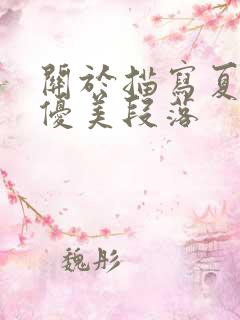 關於描寫夏
優美段落
魏彤